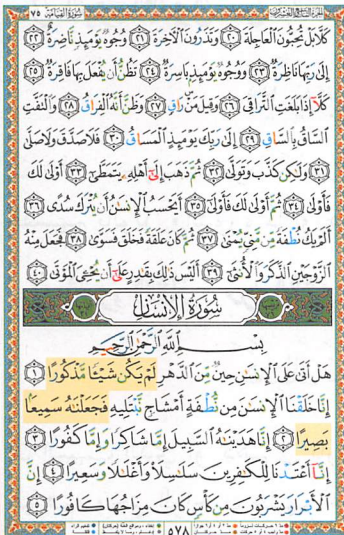 سورة القيامة ٧٥
كَلَّا بَلْ تُحِبُّونَ الْعَاجِلَةَ ٢٠ وَتَذَرُونَ الْآخِرَةَ ٢١ وُجُوهٌ يَوْمَئِذٍ نَّاضِرَةٌ ٢٢
إِلَىٰ رَبِّهَا نَاظِرَةٌ ٢٣ وَوُجُوهٌ يَوْمَئِذٍ بَاسِرَةٌ ٢٤ تَظُنُّ أَن يُفْعَلَ بِهَا فَاقِرَةٌ ٢٥
كَلَّا إِذَا بَلَغَتِ التَّرَاقِيَ ٢٦ وَقِيلَ مَنْ رَاقٍ ٢٧ وَظَنَّ أَنَّهُ الْفِرَاقُ ٢٨ وَالْتَفَّتِ
السَّاقُ بِالسَّاقِ ٢٩ إِلَىٰ رَبِّكَ يَوْمَئِذٍ الْمَسَاقُ ٣٠ فَلَا صَدَّقَ وَلَا صَلَّىٰ
٣١ وَلَٰكِن كَذَّبَ وَتَوَلَّىٰ ٣٢ ثُمَّ ذَهَبَ إِلَىٰ أَهْلِهِ يَتَمَطَّىٰ ٣٣ أَوْلَىٰ لَكَ
فَأَوْلَىٰ ٣٤ ثُمَّ أَوْلَىٰ لَكَ فَأَوْلَىٰ ٣٥ أَيَحْسَبُ الْإِنسَانُ أَن يُتْرَكَ سُدًى ٣٦
أَلَمْ يَكُ نُطْفَةً مِّن مَّنِيٍّ يُمْنَىٰ ٣٧ ثُمَّ كَانَ عَلَقَةً فَخَلَقَ فَسَوَّىٰ ٣٨ فَجَعَلَ مِنْهُ
الزَّوْجَيْنِ الذَّكَرَ وَالْأُنثَىٰ ٣٩ أَلَيْسَ ذَٰلِكَ بِقَادِرٍ عَلَىٰ أَن يُحْيِيَ الْمَوْتَىٰ ٤٠
سُورَةُ الْإِنسَانِ
بِسْمِ اللَّهِ الرَّحْمَٰنِ الرَّحِيمِ
هَلْ أَتَىٰ عَلَى الْإِنسَانِ حِينٌ مِّنَ الدَّهْرِ لَمْ يَكُن شَيْئًا مَّذْكُورًا ١
إِنَّا خَلَقْنَا الْإِنسَانَ مِن نُّطْفَةٍ أَمْشَاجٍ نَّبْتَلِيهِ فَجَعَلْنَاهُ سَمِيعًا
بَصِيرًا ٢ إِنَّا هَدَيْنَاهُ السَّبِيلَ إِمَّا شَاكِرًا وَإِمَّا كَفُورًا ٣
إِنَّا أَعْتَدْنَا لِلْكَافِرِينَ سَلَاسِلَا وَأَغْلَالًا وَسَعِيرًا ٤ إِنَّ
الْأَبْرَارَ يَشْرَبُونَ مِن كَأْسٍ كَانَ مِزَاجُهَا كَافُورًا ٥
٥٧٨